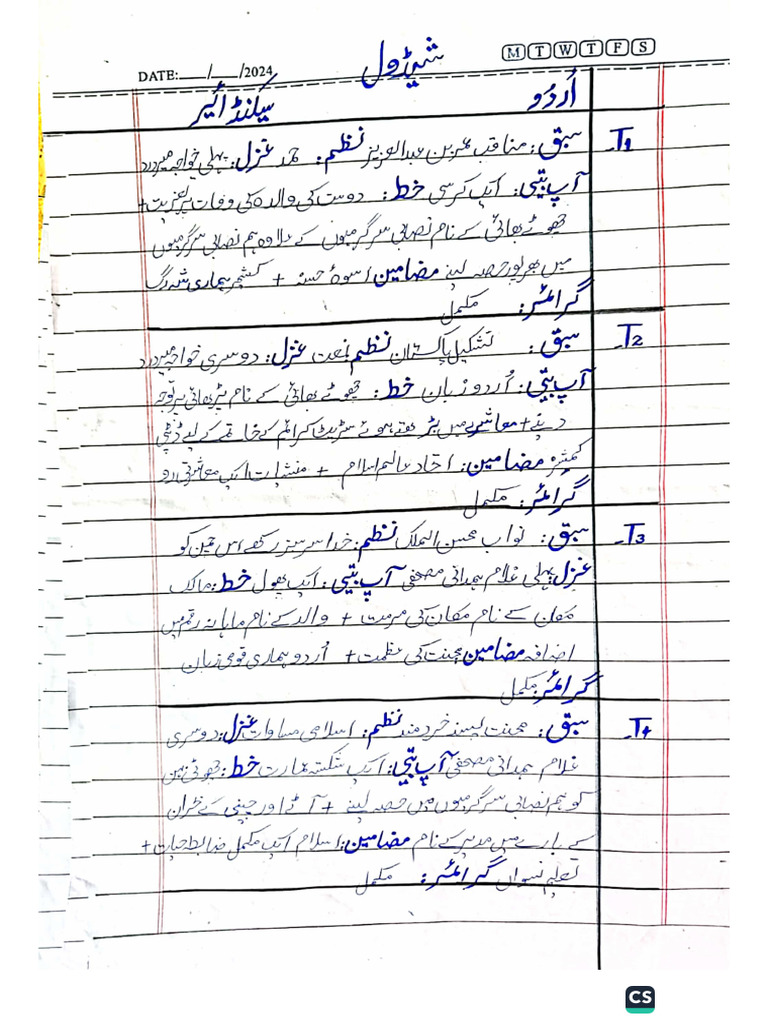 شیڈول
M T W T F S
DATE:___/___/2024
اُردُو سیکنڈ ائیر
T1 سبق: مناقب عمر بن عبدالعزیز نظم: حمد غزل: پہلی خواجہ میر درد
آپ بیتی: ایک کرسی خط: دوست کی والدہ کی وفات پر تعزیت +
چھوٹے بھائی کے نام نصابی سرگرمیوں کے علاوہ ہم نصابی سرگرمیوں
میں بھرپور حصہ لینے مضامین اسوۂ حسنہ + کشمیر ہماری شہ رگ
گرائمر: مکمل
T2 سبق: تشکیل پاکستان نظم: نعت غزل: دوسری خواجہ میر درد
آپ بیتی: اُردو زبان خط: چھوٹے بھائی کے نام پڑھائی پر توجہ
دینے + معاشرے میں بڑھتے ہوئے سٹریٹ کرائم کے خاتمے کے لیے ڈپٹی
کمشنر مضامین: اتحاد عالم اسلام + منشیات ایک معاشرتی
گرائمر: مکمل
T3 سبق: نواب محسن الملک نظم: خدا سرسبز رکھے اس چمن کو
غزل پہلی غلام ہمدانی مصحفی آپ بیتی: ایک پھول خط: مالک
مکان کے نام مکان کی مرمت + والد کے نام ماہانہ رقم میں
اضافہ مضامین محنت کی عظمت + اُردو ہماری قومی زبان
گرائمر: مکمل
T4 سبق: محنت پسند خردمند نظم: اسلامی مساوات غزل: دوسری
غلام ہمدانی مصحفی آپ بیتی: ایک شکستہ عمارت خط: چھوٹی بہن
کو ہم نصابی سرگرمیوں میں حصہ لینے + آٹے اور چینی کے بحران
کے بارے میں مدیر کے نام مضامین: اسلام ایک مکمل ضابطہ حیات +
تعلیم نسواں گرائمر: مکمل
CS